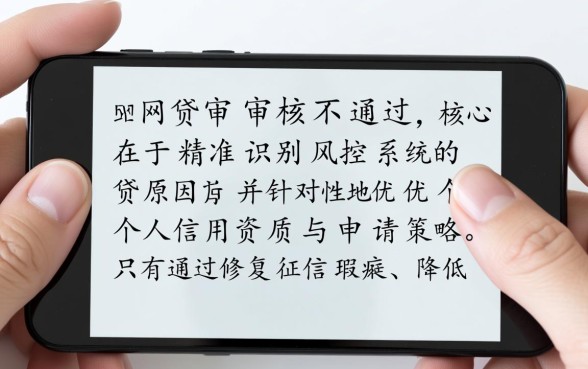 网贷审 审核不通过，核心
在于精准识别风控系统的
贷原因 并针对性地优 优 个
个人信用资质与申请策略。
只有通过修复征信瑕疵、降低